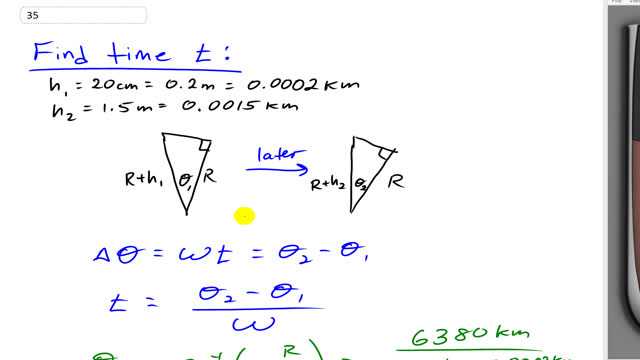 35
Find time t:
h₁ = 20cm = 0.2m = 0.0002 km
h₂ = 1.5m = 0.0015 km
R+h₁ θ₁ R later R+h₂ θ₂ R
Δθ = ωt = θ₂ - θ₁
t = θ₂ - θ₁ / ω
6380 km
R